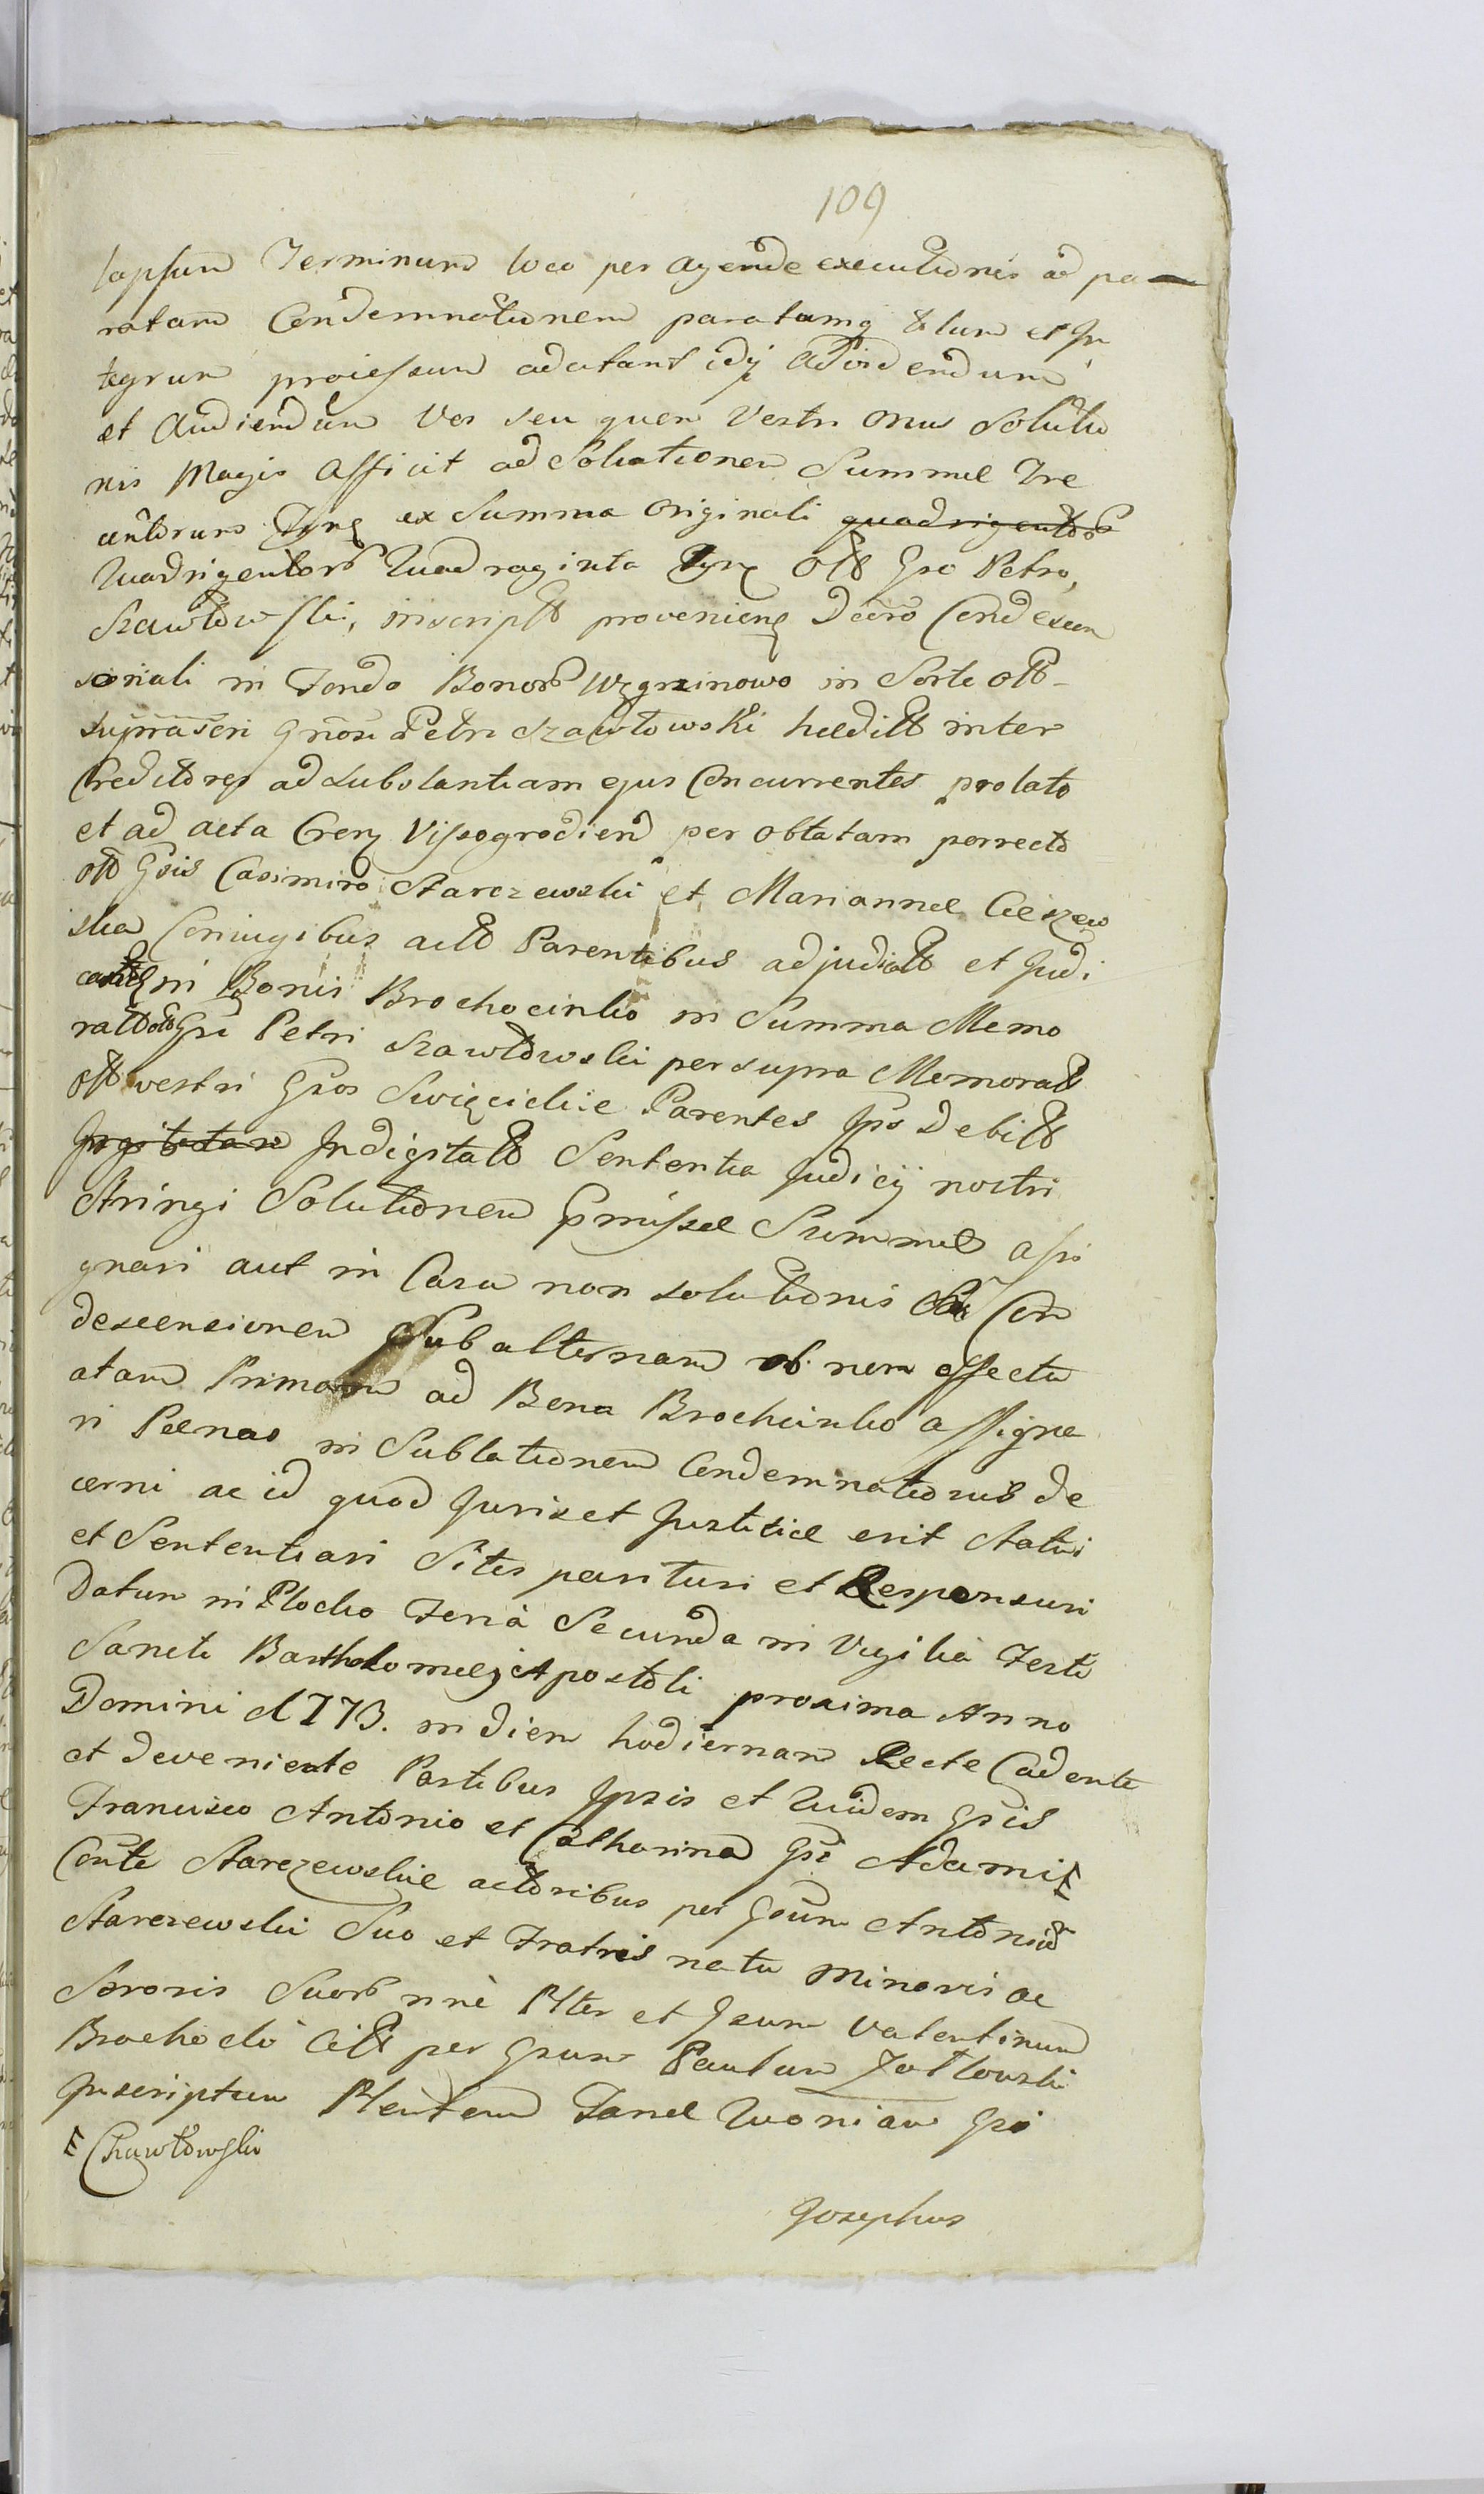 109
lapsum Terminum loco per agendae executionis ad pa
ratam Condemnationem paratumq et In
tegrum processum adcitant idq ad videndum
et Audiendum Vos seu quem Vestri onus Solutio
nis Magis afficit ad Solutionem Summae Tre
centorum ex Summa Originali quadrigentor
Quadrigentor Quadraginta olt Gso Petro
Szawłowski, inscript provenien Decro Condescen
sionali in Fondo Bonor Węgrzinowo in Sorte olt
suprascri Gnosi Petri Szawłowski haedit inter
Creditores ad substantiam ejus Concurrentes prolato
et ad acta Cren Vissogrodien per oblatam porrecto
olt Gsis Casimiro Starczewski et Mariannae Cieszew
ska Coniugibus act Parentibus adjudicat et Judi
in Bonis Brochocinko in Summa Memo
rat olt Gsi Petri Szawłowski per supra Memorat
olt vestri Gsos Święcickie Parentes Ips Debitt
Indigitatt Sententia Judicij nostri
Stringi Solutionem pmissae Summae assi
gnari aut in Casu non solutionis Con
descensionem Subalternam ob non effectu
atam Primam ad Bona Brochcinko assigna
ri Paenas in Sublationem Condemnationis de
cerni ac id quod Juris et Justitiae erit Statui
et Sententiari Sitis parituri et Responsuri
Datum in Plocko Feria Secunda in Vigilia Festi
Sancti Bartholomaej Apostoli proxima Anno
Domini 1773. in diem hodiernam Recte Cadente
et deveniente Partibus Ipsis et Quidem Gsis
Francisco Antonio et Catharina Gsi Adami E
Conte Starczewskie actoribus per Gsum Antoniu
Starczewski Suo et Fratris natu Minoris ac
Sororis Suor nne Plter et Gsum Valentinum
Brochocki Citt per Gsum Paulum Zołtowski
Inscriptum Pltentem Janae Quoniam Gsi
E Chawłowski
Josephus